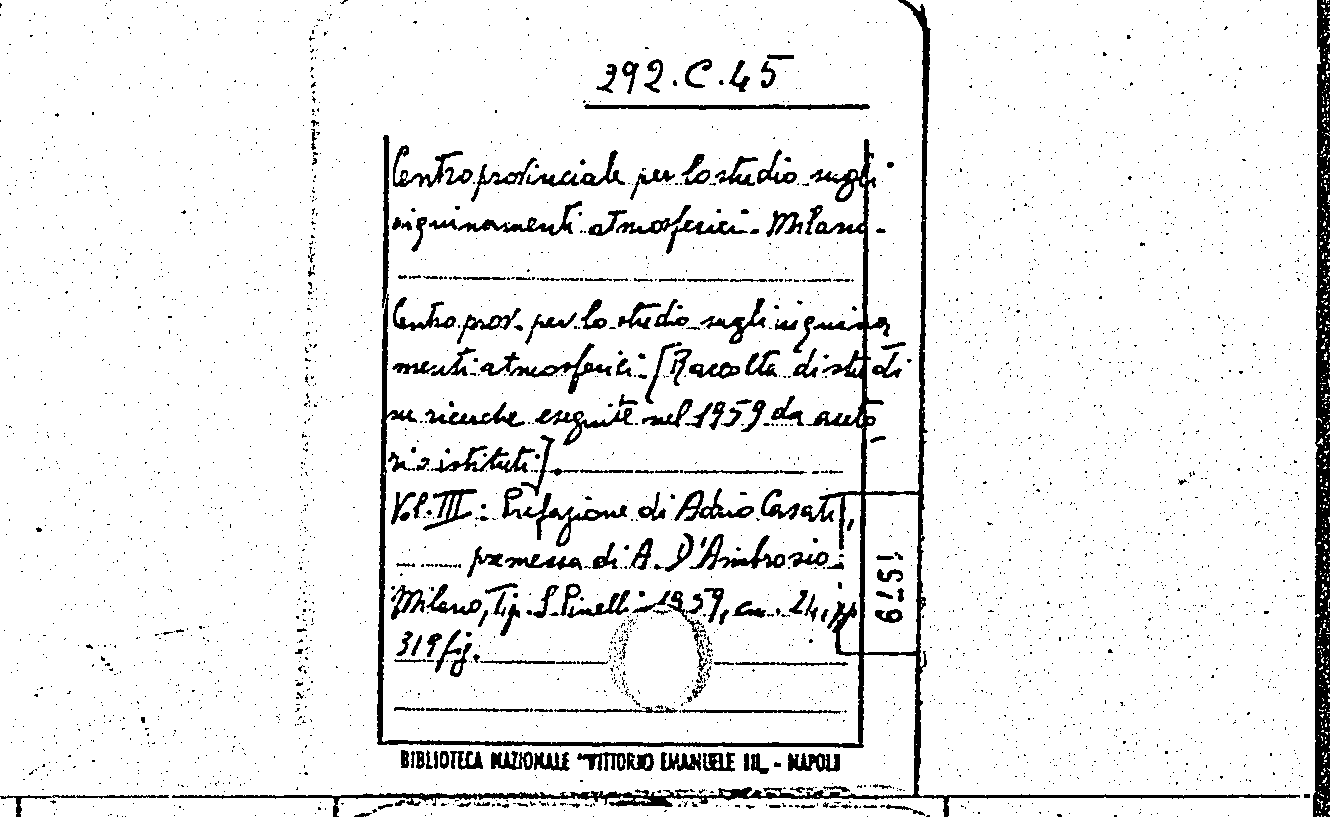 292.C.45
Centro provinciale per lo studio sugli
inquinamenti atmosferici. Milano.
Centro prov. per lo studio sugli inquina
menti atmosferici. [Raccolta di studi
su ricerche eseguite nel 1959 da auto
ri o istituti].
Vol. III: Prefazione di Adrio Casati,
premessa di A. D'Ambrosio.
Milano, Tip. S. Pinelli 1959, cm. 24, pp
319 fig.
BIBLIOTECA NAZIONALE "VITTORIO EMANUELE III" - NAPOLI